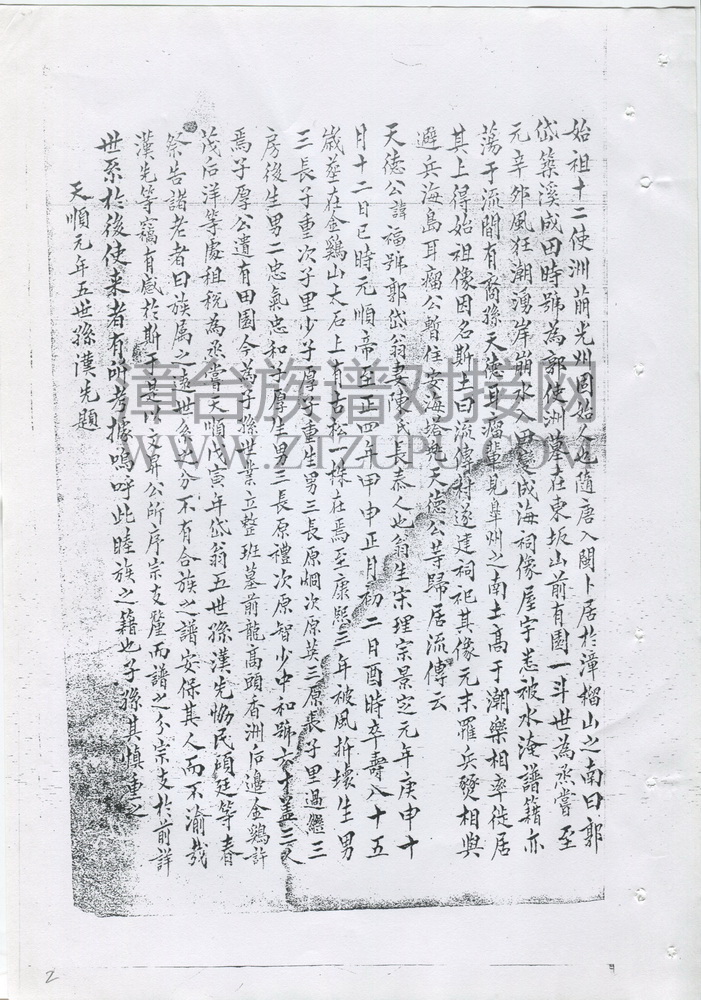 始祖十二使洲葫光州固始人也隨唐入閩卜居於漳榴山之南曰郭
岱築溪成田時號為郭使洲墓在東坂山前有園一斗世為烝嘗至
元辛卯風狂潮湧岸崩水入田變成海祠像屋宇悉被水淹譜籍亦
蕩于流間有裔孫天德耳瘤輩見皐州之南土高于潮樂相率徙居
其上得始祖像因名斯土曰流傳村遂建祠祀其像元末罹兵燹相與
避兵海島耳瘤公暫住安海塔兜天德公等歸居流傳云
天德公諱福號郭岱翁妻陳氏長泰人也翁生宋理宗景定元年庚申十
月十二日巳時元順帝至正四年甲申正月初二日酉時卒壽八十五
歲葬在金鷄山大石上有古松一株在焉至康熙三年被風折壞生男
三長子重次子里少子厚子重生男三長原烱次原英三原長子里過繼三
房後生男二忠氣忠和子厚生男三長原禮次原智少中和號六十盖三人
焉子厚公遺有田園今為子孫世業立整班墓前龍高頭香洲后邊金鷄許
茂后洋等處租稅為烝嘗天順戊寅年岱翁五世孫漢先惕民碩廷等春
祭告諸老者曰族属之遠世系之分不有合族之譜安保其人而不渝哉
漢先等竊有感於斯于是以文昇公所序宗支釐而譜之分宗支於前詳
世系於後使来者有所考據嗚呼此睦族之籍也子孫其慎重之
天順元年五世孫漢先題
漳台族谱对接网
WWW.ZTZUPU.COM
2